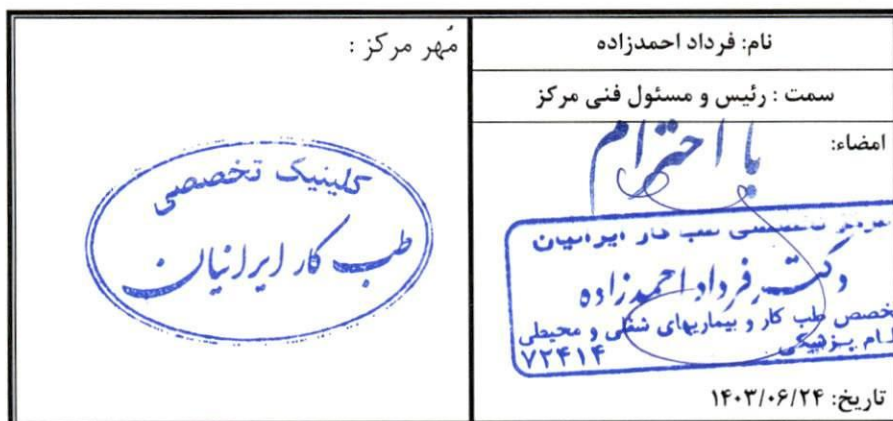 نام: فرداد احمدزاده
سمت : رئیس و مسئول فنی مرکز
امضاء:
با احترام
مرکز تخصصی طب کار ایرانیان
دکتر فرداد احمدزاده
تخصص طب کار و بیماریهای شغلی و محیطی
نظام پزشکی
۷۲۴۱۴
تاریخ: ۱۴۰۳/۰۶/۲۴
مُهر مرکز :
کلینیک تخصصی
طب کار ایرانیان